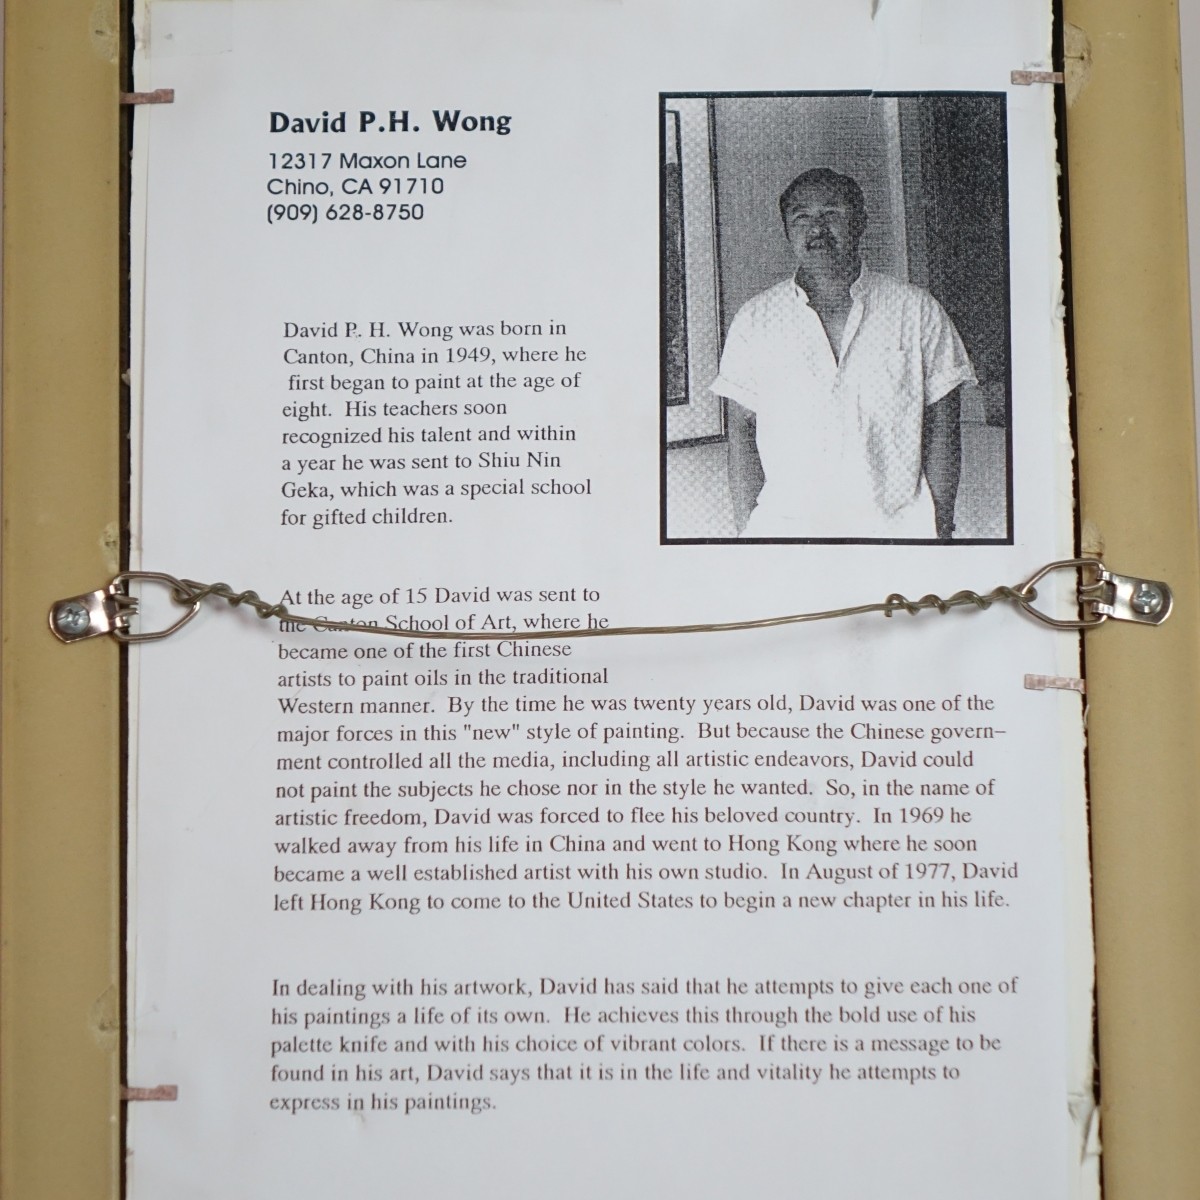 David P.H. Wong
12317 Maxon Lane
Chino, CA 91710
(909) 628-8750
David P. H. Wong was born in
Canton, China in 1949, where he
first began to paint at the age of
eight. His teachers soon
recognized his talent and within
a year he was sent to Shiu Nin
Geka, which was a special school
for gifted children.
At the age of 15 David was sent to
the Canton School of Art, where he
became one of the first Chinese
artists to paint oils in the traditional
Western manner. By the time he was twenty years old, David was one of the
major forces in this "new" style of painting. But because the Chinese govern-
ment controlled all the media, including all artistic endeavors, David could
not paint the subjects he chose nor in the style he wanted. So, in the name of
artistic freedom, David was forced to flee his beloved country. In 1969 he
walked away from his life in China and went to Hong Kong where he soon
became a well established artist with his own studio. In August of 1977, David
left Hong Kong to come to the United States to begin a new chapter in his life.
In dealing with his artwork, David has said that he attempts to give each one of
his paintings a life of its own. He achieves this through the bold use of his
palette knife and with his choice of vibrant colors. If there is a message to be
found in his art, David says that it is in the life and vitality he attempts to
express in his paintings.